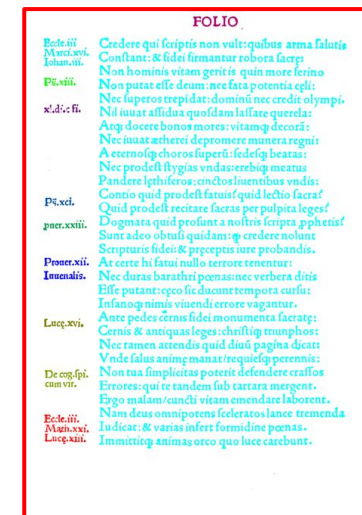 FOLIO
Eccle.iii
Marci.xvi.
Iohan.iii.
Pš.xiii.
x!.di.c fi.
Pš.xci.
puer.xxiii.
Prouer.xii.
Iuuenalis.
Lucę.xvi.
De cog.spi.
cum vir.
Eccle.iii.
Math.xxi.
Lucę.xiii.
Credere qui scriptis non vult: quibus arma salutis
Constant: & fidei firmantur robora sacrę:
Non hominis vitam gerit is quin more ferino
Non putat esse deum: nec fata potentia cęli:
Nec superos trepidat: dominū nec credit olympi.
Nil iuuat assidua quosdam lassare querela:
Atq; docere bonos mores: vitamq; decorā:
Nec iuuat ætherei depromere munera regni:
A eternosq; choros superū: sedesq; beatas:
Nec prodest stygias vndas: erebiq; meatus
Pandere lęthiferos: cinctos liuentibus vndis:
Contio quid prodest fatuis? quid lectio sacra?
Quid prodest recitare sacras per pulpita leges?
Dogmata quid prosunt a nostris scripta ,pphetis?
Sunt adeo obtusi quidam: ꝙ credere nolunt
Scripturis fidei: & pręceptis iure probandis.
At certe hi fatui nullo terrore tenentur:
Nec duras barathri pœnas: nec verbera ditis
Esse putant: cęco sic ducunt tempora cursu:
Insanoq; nimis viuendi errore vagantur.
Ante pedes cernis fidei monumenta sacratę:
Cernis & antiquas leges: christiq; triumphos:
Nec tamen attendis quid diuū pagina dicat:
Vnde salus animę manat/requiesq; perennis:
Non tua simplicitas poterit defendere crassos
Errores: qui te tandem sub tartara mergent.
Ergo malam/cuncti vitam emendare laborent.
Nam deus omnipotens sceleratos lance tremenda
Iudicat: & varias infert formidine pœnas.
Immittitq; animas orco quo luce carebunt.